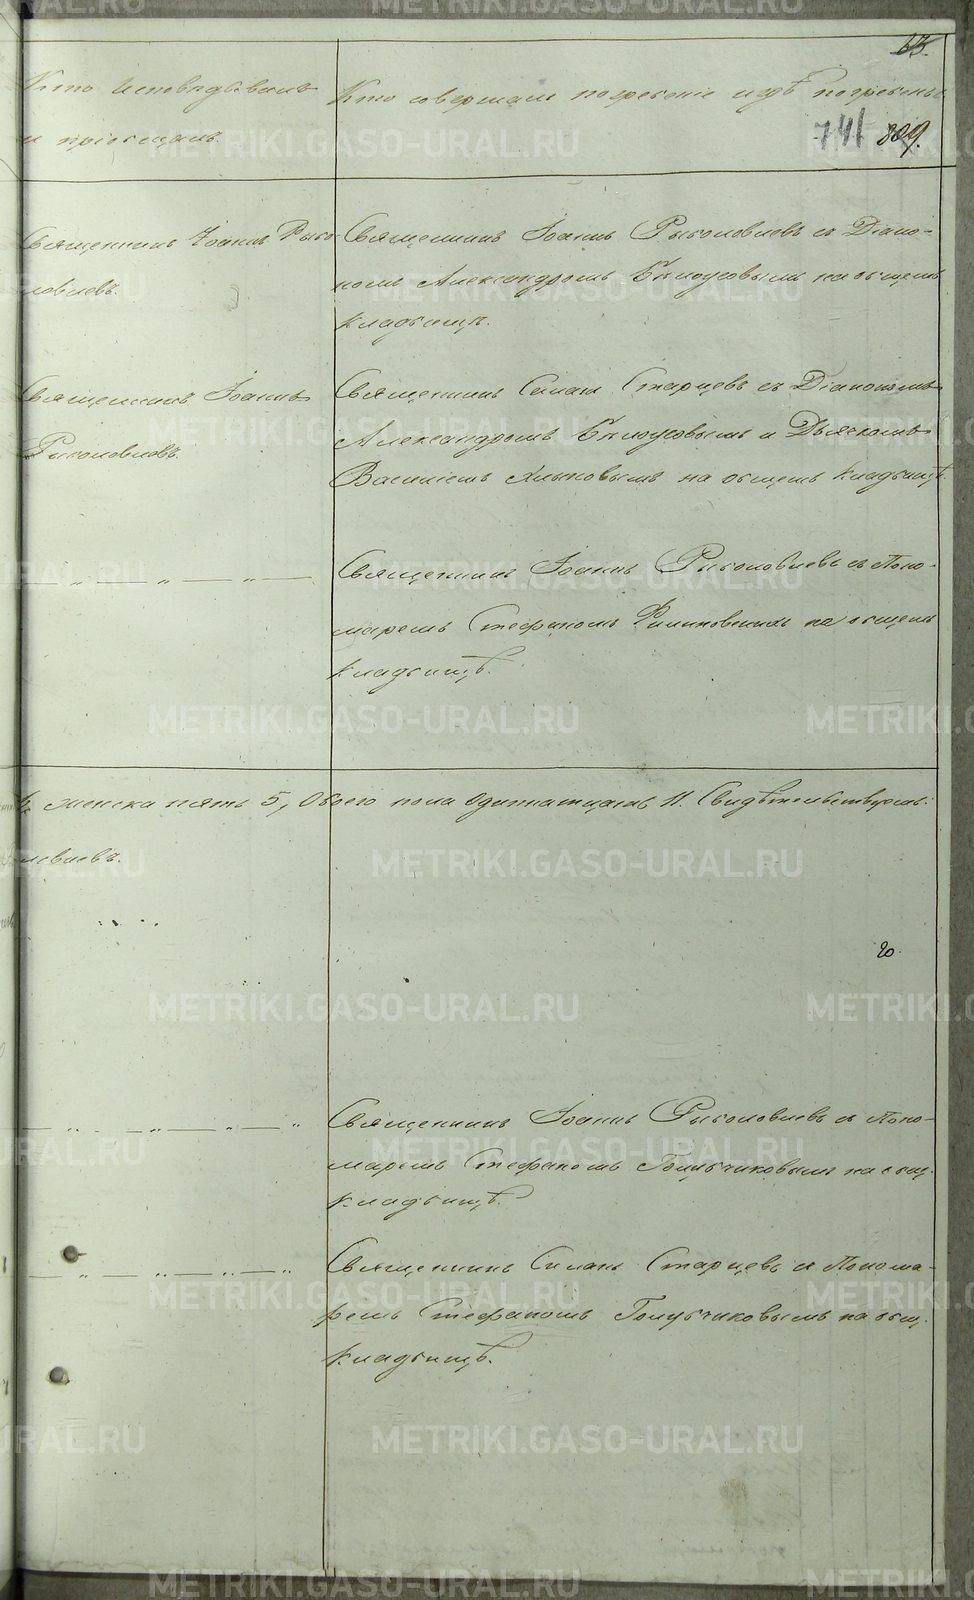 63.
Кто Исповѣдывалъ
и пріобщалъ.
Кто совершалъ погребеніе и гдѣ погребены
741 809.
Священникъ Іоаннъ
Священникъ Іоаннъ съ Діако-
номъ Александромъ Бѣлоусовымъ на общемъ
кладбищѣ.
Священникъ Іоаннъ
Священникъ Силанъ Старцевъ съ Діакономъ
Александромъ Бѣлоусовымъ и Дьячкомъ
Василіемъ на общемъ кладбищѣ.
— „ — „ — „ —
Священникъ Іоаннъ съ Поно-
маремъ Стефаномъ на общемъ
кладбищѣ.
женска пять 5, Обоего пола Одиннатцать 11. Свидѣтельствуемъ:
20.
— „ — „ — „ — „
Священникъ Іоаннъ съ Поно-
маремъ Стефаномъ Голубчиковымъ на общ.
кладбищѣ.
— „ — „ — „ — „
Священникъ Силанъ Старцевъ съ Понома-
ремъ Стефаномъ Голубчиковымъ на общ.
кладбищѣ.
METRIKI.GASO-URAL.RU